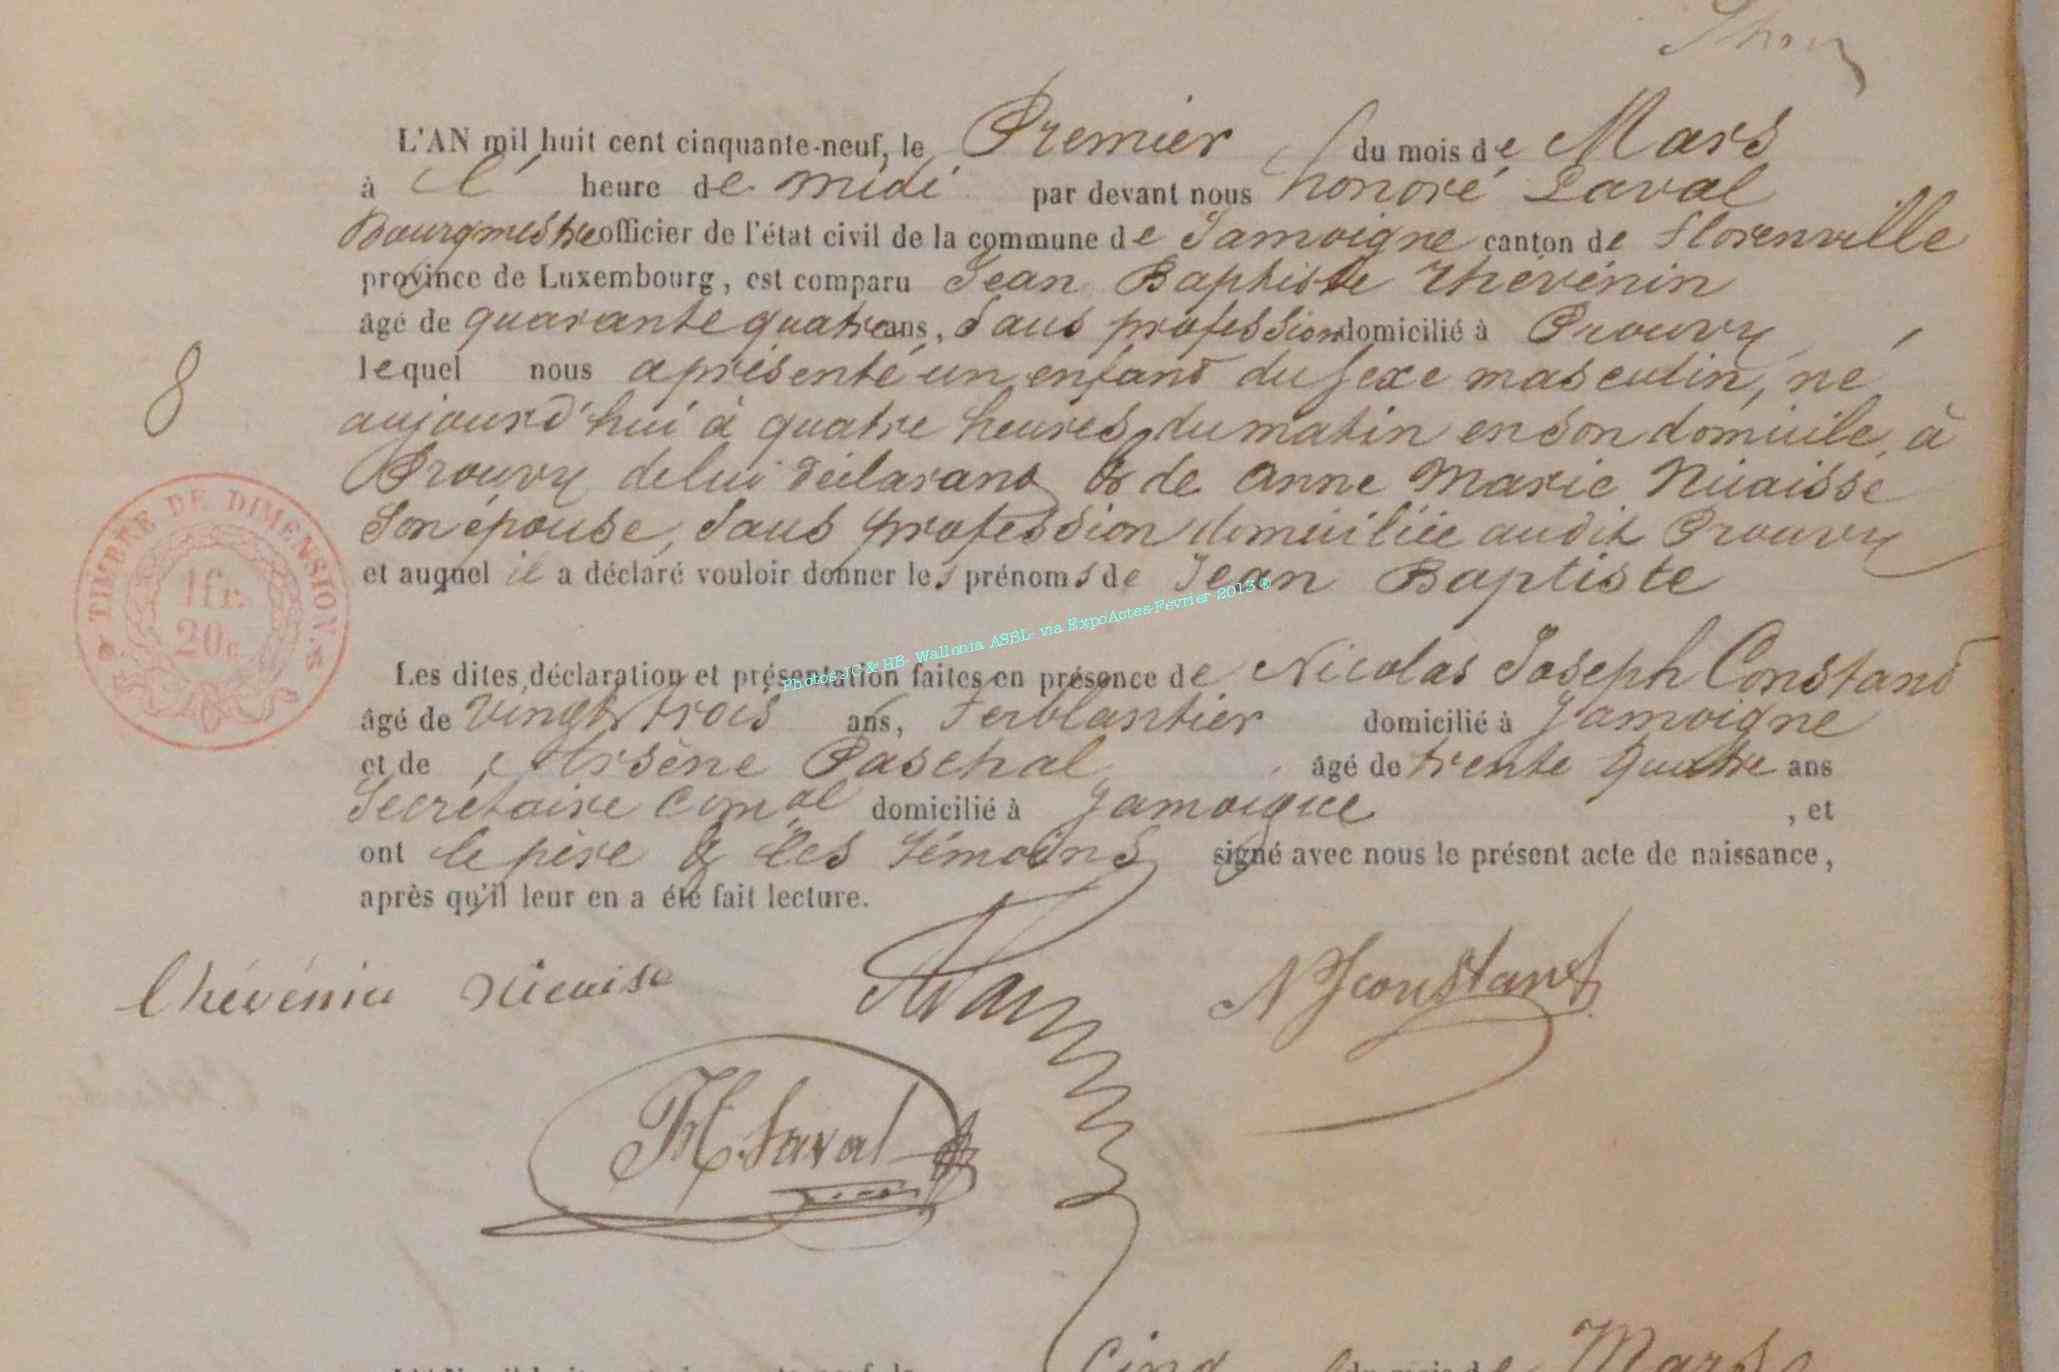 L'AN mil huit cent cinquante-neuf, le Premier du mois de Mars
à l' heure de midi par devant nous honoré Laval
Bourgmestre officier de l'état civil de la commune de Jamoigne canton de Florenville
province de Luxembourg, est comparu Jean Baptiste Thévénin
âgé de quarante quatre ans, Sans profession domicilié à Prouvy
lequel nous a présenté un enfant du sexe masculin, né
aujourd'hui à quatre heures du matin en son domicile, à
Prouvy de lui déclarant & de Anne Marie Nicaisse
Son épouse, Sans profession domiciliée audit Prouvy
et auquel il a déclaré vouloir donner les prénoms de Jean Baptiste
8
TIMBRE DE DIMENSION.
1fr.
20c.
Photos JC & HB- Wallonia ASBL- via ExpoActes-Février 2013 ®
Les dites déclaration et présentation faites en présence de Nicolas Joseph Constant
âgé de vingt trois ans, Ferblantier domicilié à Jamoigne
et de Arsène Paschal âgé de trente quatre ans
Secrétaire Comal domicilié à Jamoigne , et
ont le père & les témoins signé avec nous le présent acte de naissance,
après qu'il leur en a été fait lecture.
thévénin Nicaise NJConstant
H Laval
Cinq du mois de Mars